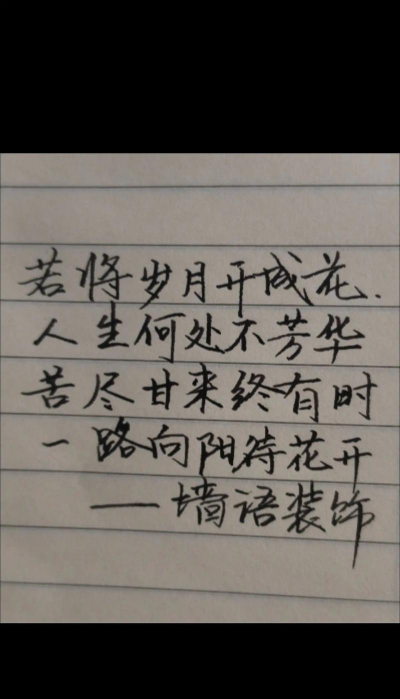 若将岁月开成花.
人生何处不芳华
苦尽甘来终有时
一路向阳待花开
——墙语装饰